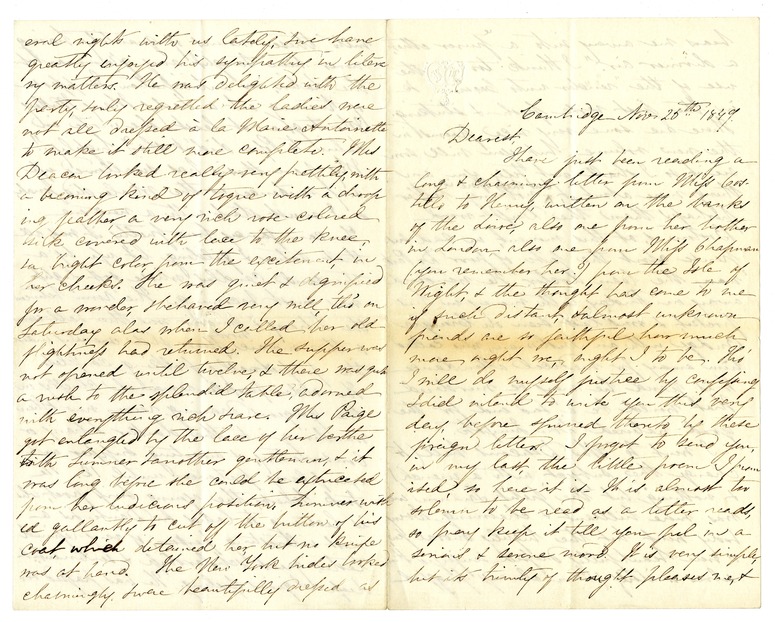 Cambridge Nov 25th 1849.
Dearest,
I have just been reading a
long & charming letter from Miss Cos-
tello to Henry, written on the banks
of the Loire, also one from her brother
in London also one from Miss Chapman
(you remember her) from the Isle of
Wight, & the thought has come to me
if such distant, & almost unknown
friends are so faithful how much
more ought we, ought I to be. Tho'
I will do myself justice by confessing
I did intend to write you this very
day, before spurred thereto by these
foreign letters. I forgot to send you,
in my last, the little poem I prom
ised, so here it is. It is almost too
solemn to be read as a letter reads,
so pray keep it till you feel in a
serious & serene mood. It is very simple
but its of thought pleases me, &
eral nights with us lately, & we have
greatly enjoyed his sympathy in litera
ry matters. He was delighted with the
party, only regretted the ladies were
not all dressed à la Marie Antoinette
to make it still more complete. Mrs
Deacon looked really very prettily, with
a becoming kind of toque with a droop
ing feather a very rich rose-colored
silk covered with lace to the knee,
& a bright color from the excitement, in
her cheeks. She was quiet & dignified
for a wonder, & behaved very well, tho' on
Saturday alas when I called, her old
flightiness had returned. The supper was
not opened until twelve, & there was quite
a rush to the splendid table, adorned
with everything rich & rare. Mrs Paige
got entangled by the lace of her berthe
with Sumner & another gentleman, & it
was long before she could be extricated
from her ludicrous position, Sumner wish
ed gallantly to cut off the button of his
coat which detained her but no knife
was at hand. The New York brides looked
charmingly, & were beautifully dressed as